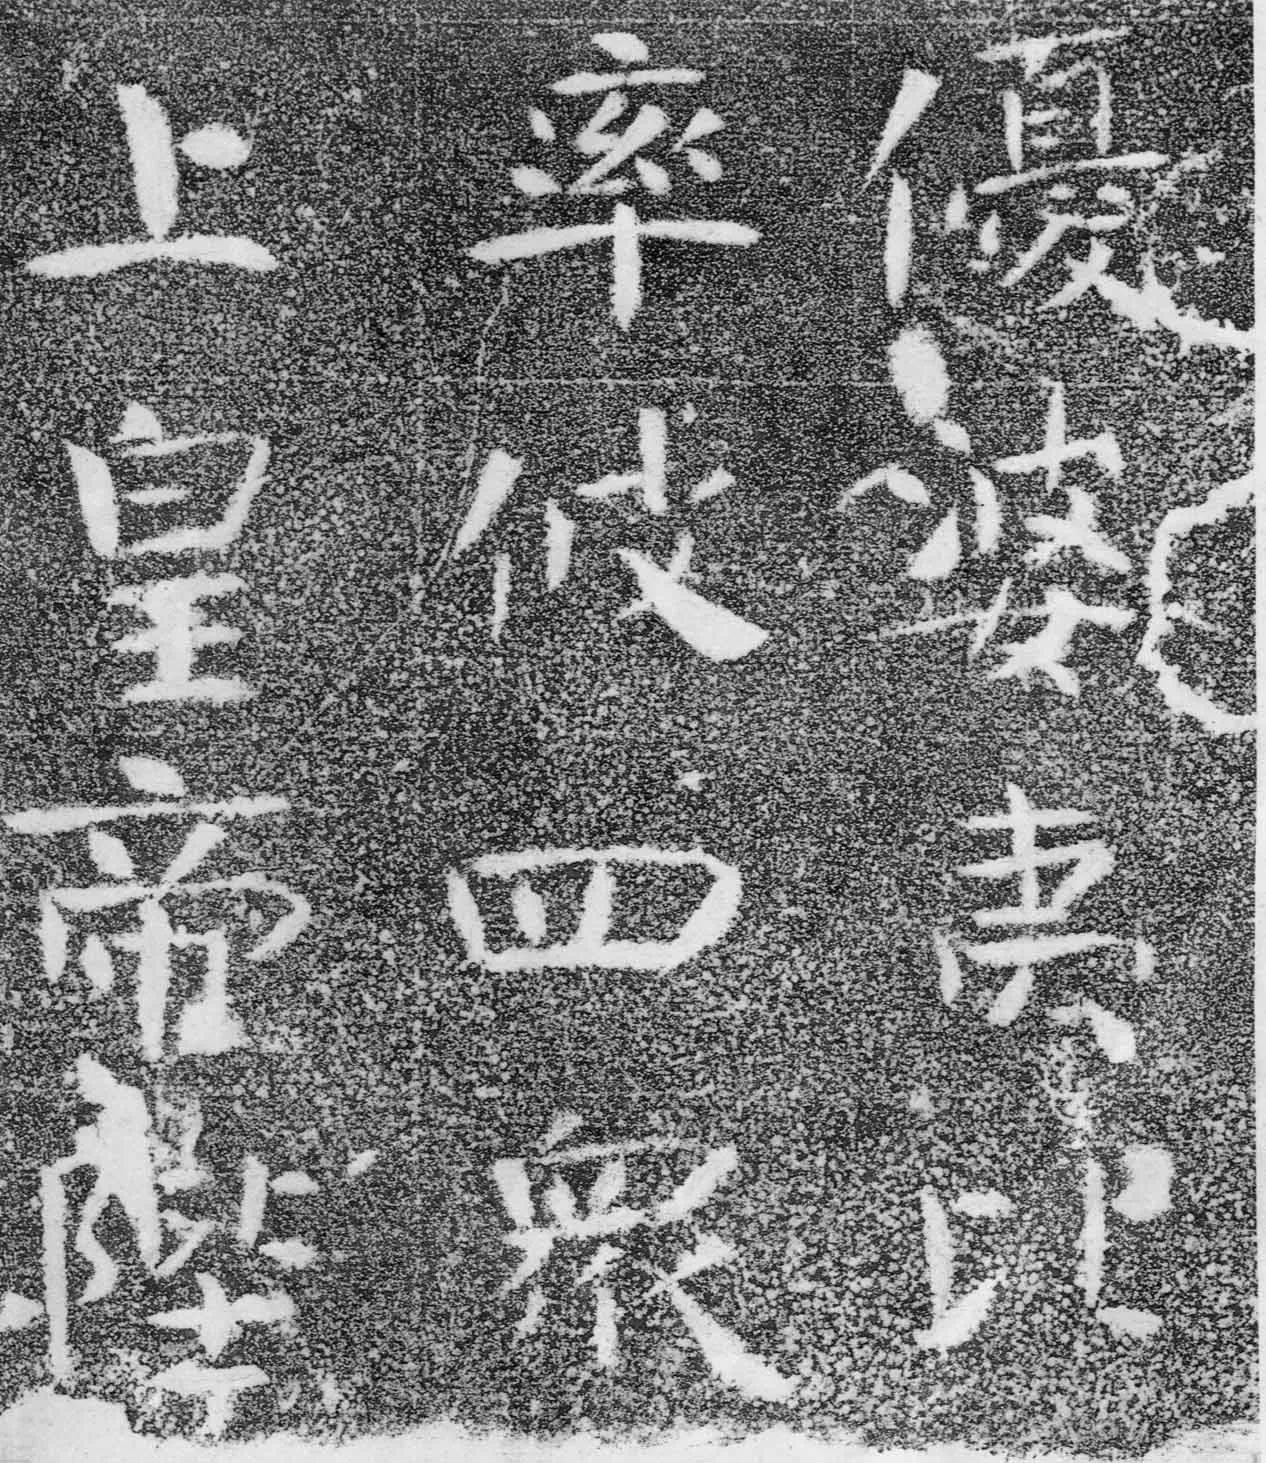 優婆
率彼四衆
上皇帝陛